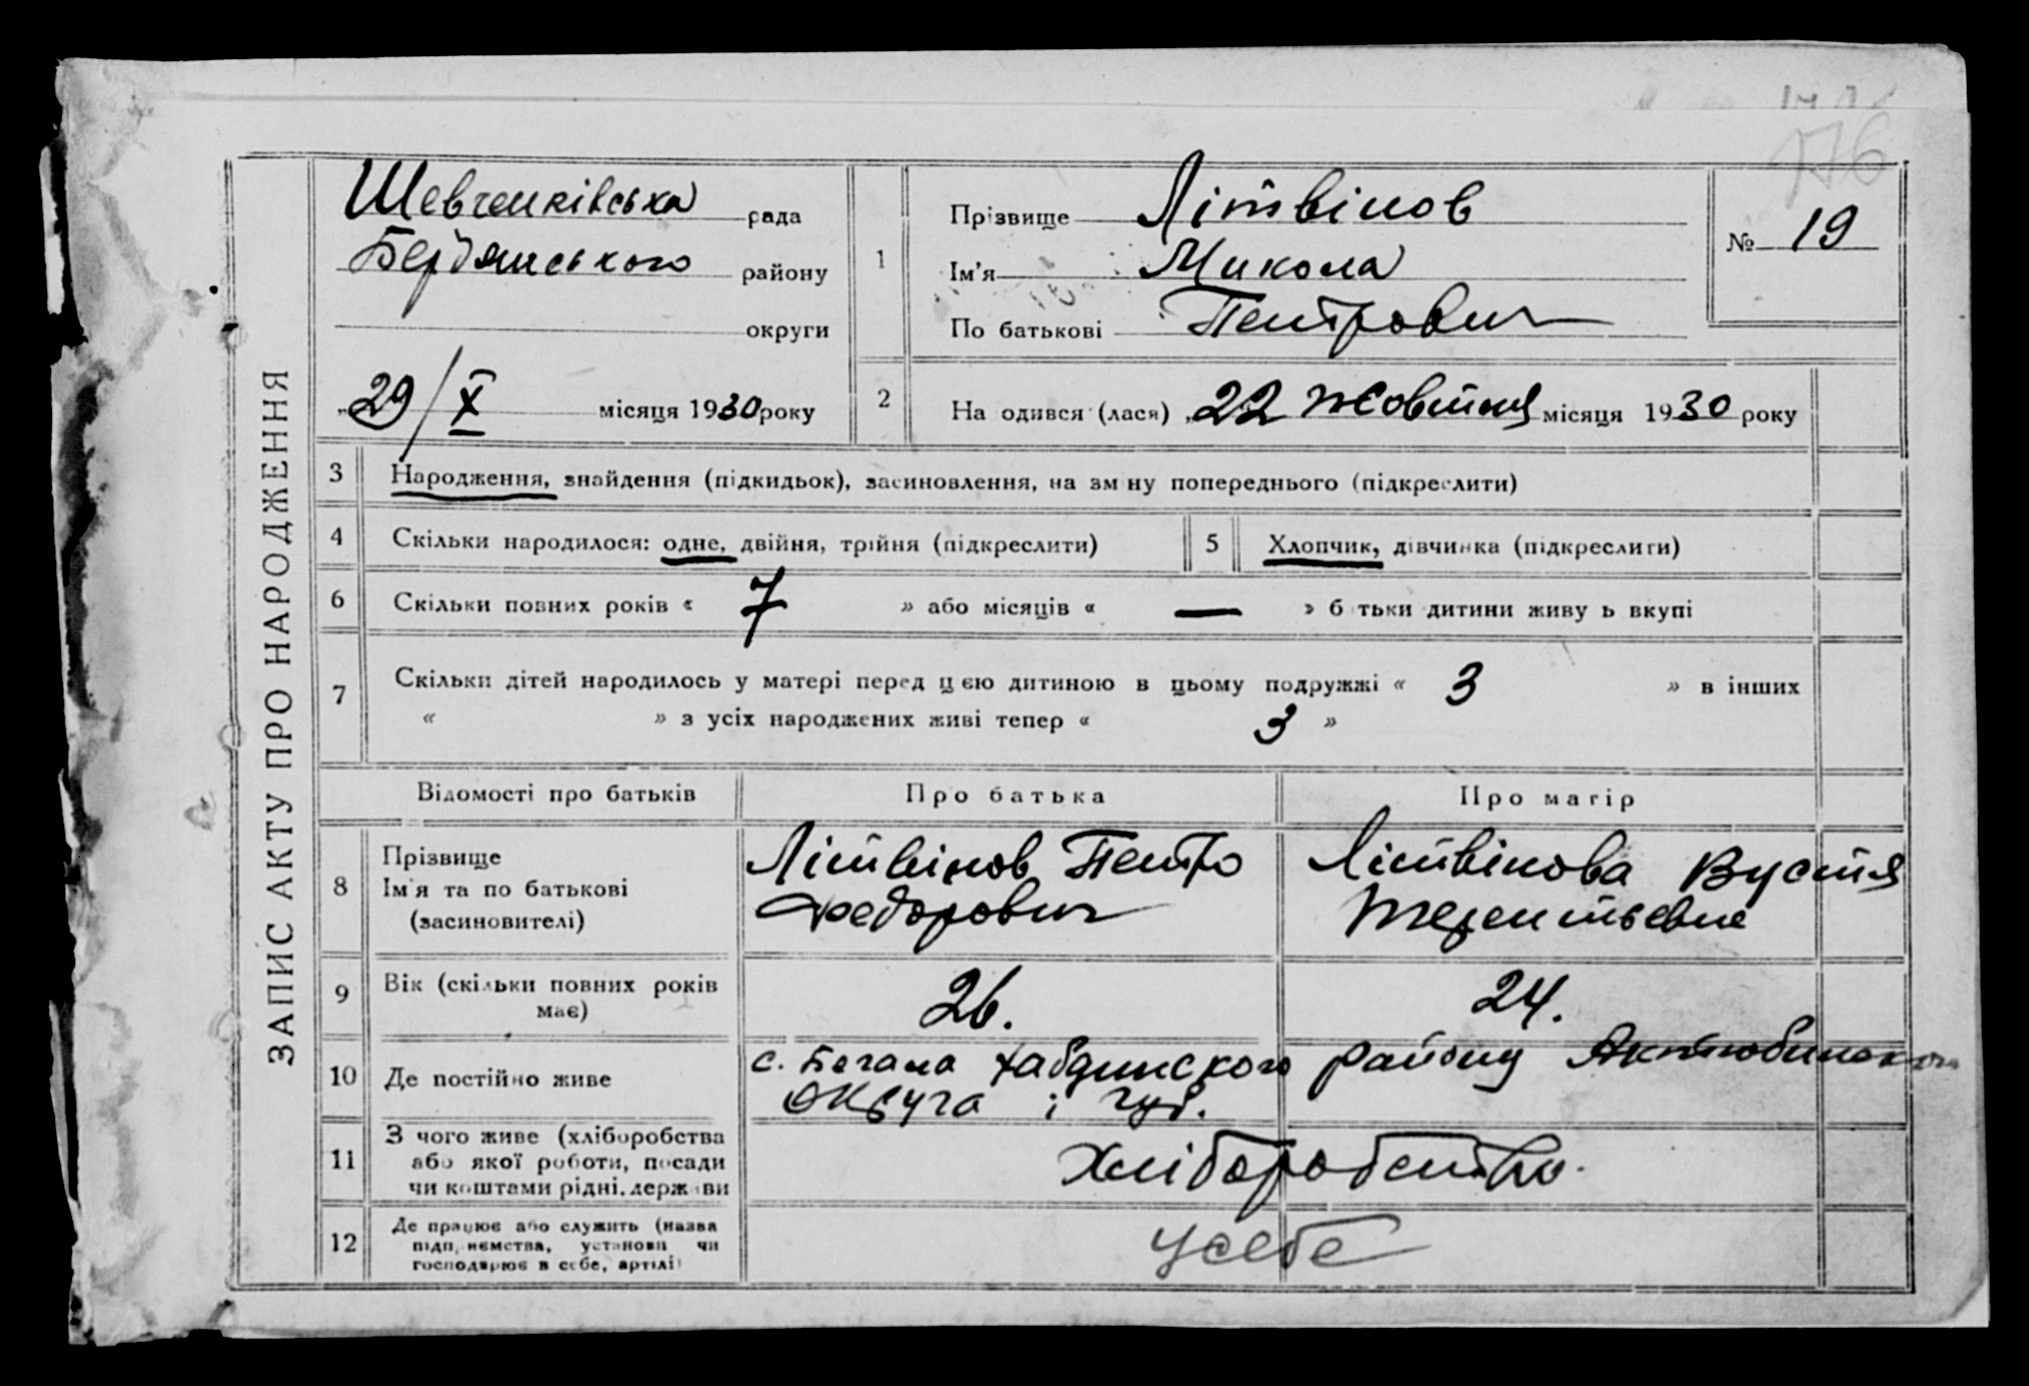 176
ЗАПИС АКТУ ПРО НАРОДЖЕННЯ
Шевченківська рада
Бердянського району
округи
„29/X місяця 1930 року
1
Прізвище Літвінов
Ім’я Микола
По батькові Петрович
№ 19
2 На одився (лася) „22 Жовтня місяця 1930 року
3 Народження, знайдення (підкидьок), засиновлення, на зм ну попереднього (підкреслити)
4 Скільки народилося: одне, двійня, трійня (підкреслити) 5 Хлопчик, дівчинка (підкреслити)
6 Скільки повних років « 7 » або місяців « — » б тьки дитини живу ь вкупі
7 Скільки дітей народилось у матері перед цією дитиною в цьому подружжі « 3 » в інших
« » з усіх народжених живі тепер « 3 »
Відомості про батьків Про батька Про матір
8 Прізвище
Ім’я та по батькові
(засиновителі)
Літвінов Петро
Федорович
Літвінова Вустя
Терентьевна
9 Вік (скільки повних років
має)
26. 24.
10 Де постійно живе
с. Богама Хабдинского району Актюбинского
округа і губ.
11 З чого живе (хліборобства
або якої роботи, посади
чи коштами рідні. держави
Хліборобство.
12 Де працює або служить (назва
підп, иємства, установи чи
господарює в себе, артілі)
усебе